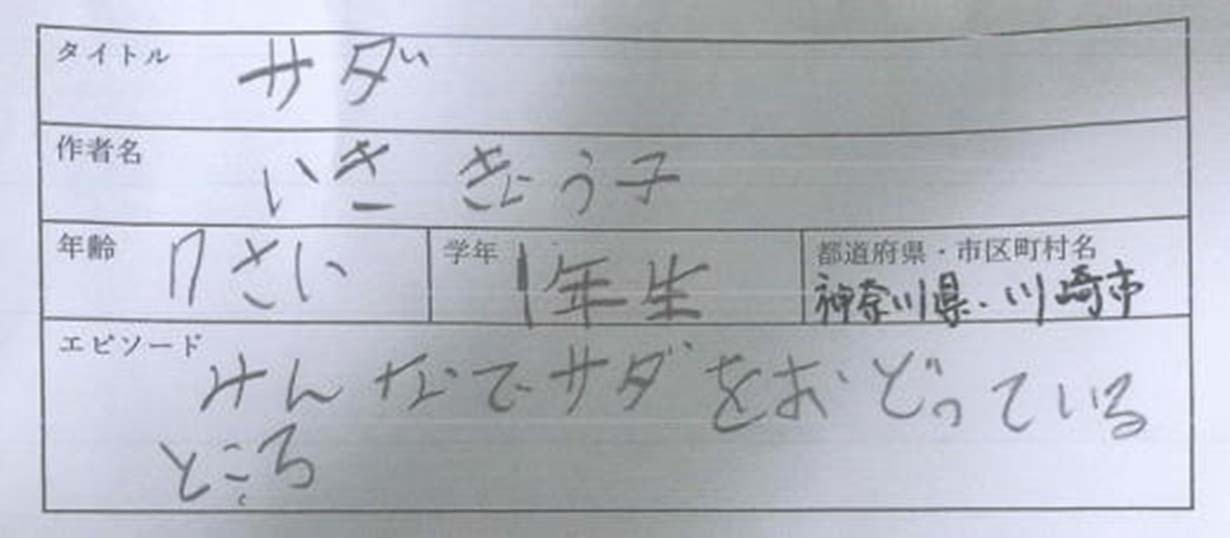 タイトル サダ
作者名 いき きょう子
年齢 7さい 学年 1年生 都道府県・市区町村名 神奈川県・川崎市
エピソード
みんなでサダをおどっている
ところ